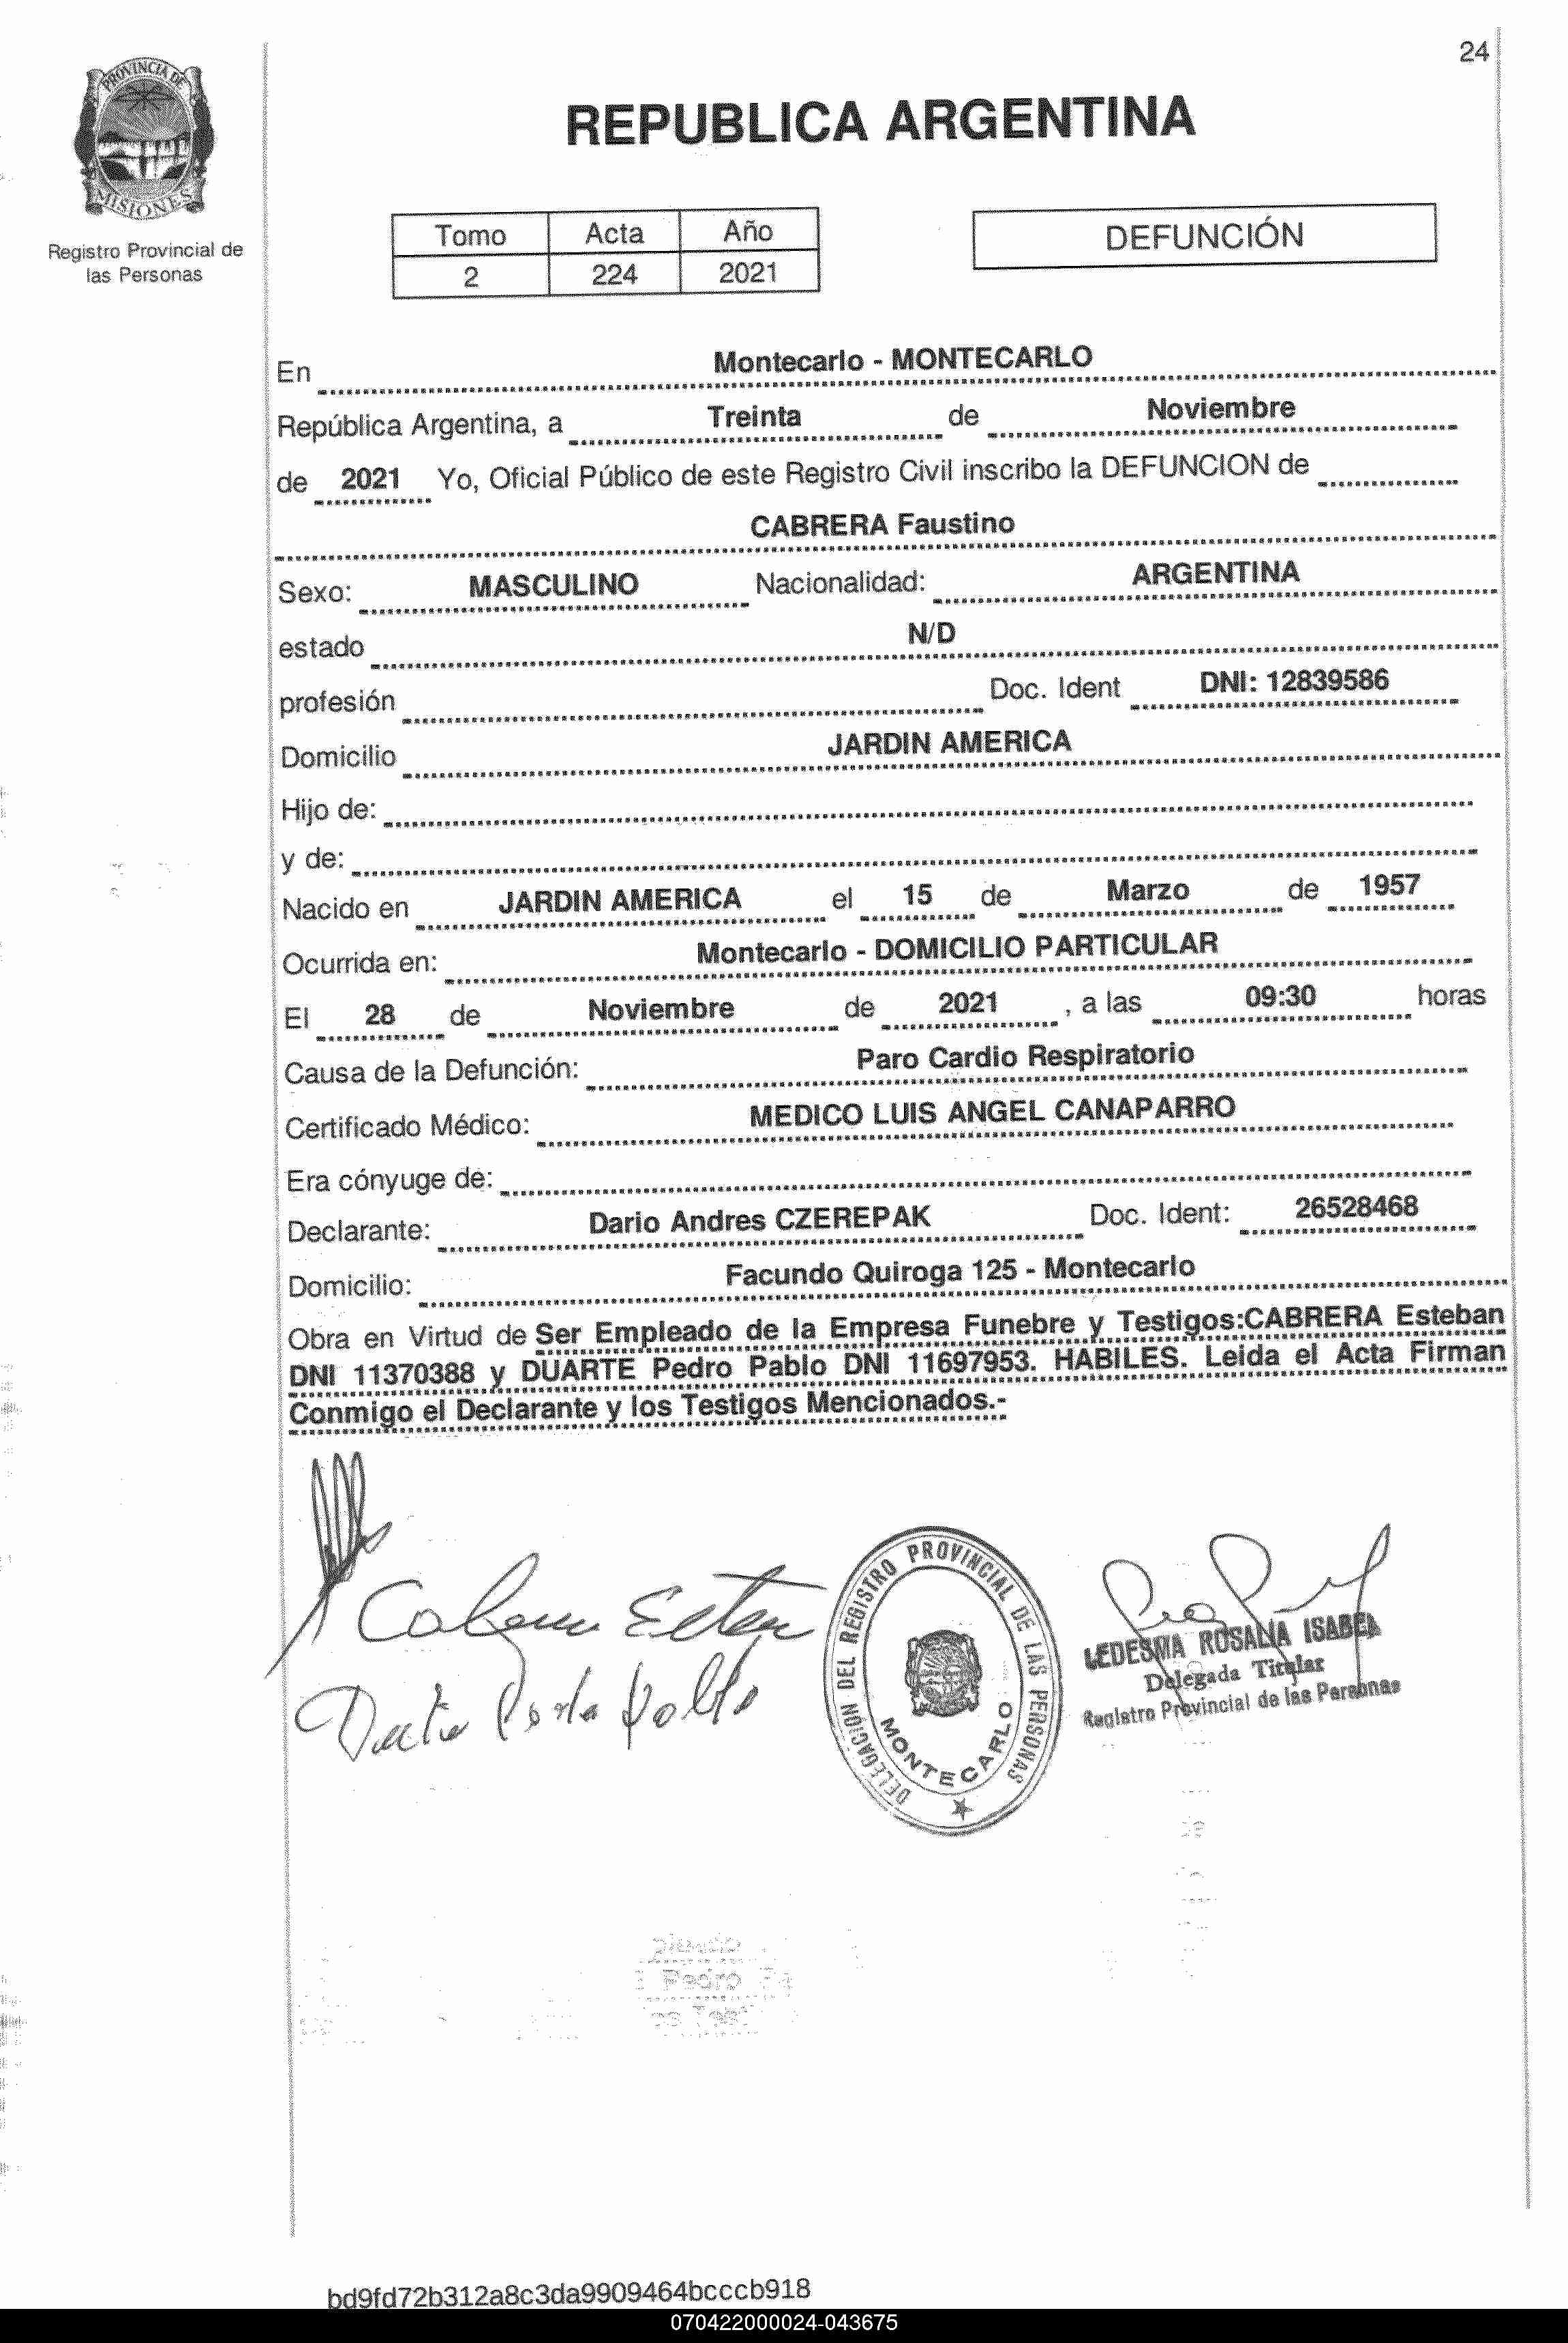 24
PROVINCIA DE
MISIONES
Registro Provincial de
las Personas
REPUBLICA ARGENTINA
Tomo Acta Año
2 224 2021
DEFUNCIÓN
En Montecarlo - MONTECARLO
República Argentina, a Treinta de Noviembre
de 2021 Yo, Oficial Público de este Registro Civil inscribo la DEFUNCION de
CABRERA Faustino
Sexo: MASCULINO Nacionalidad: ARGENTINA
estado N/D
profesión Doc. Ident DNI: 12839586
Domicilio JARDIN AMERICA
Hijo de:
y de:
Nacido en JARDIN AMERICA el 15 de Marzo de 1957
Ocurrida en: Montecarlo - DOMICILIO PARTICULAR
El 28 de Noviembre de 2021 , a las 09:30 horas
Causa de la Defunción: Paro Cardio Respiratorio
Certificado Médico: MEDICO LUIS ANGEL CANAPARRO
Era cónyuge de:
Declarante: Dario Andres CZEREPAK Doc. Ident: 26528468
Domicilio: Facundo Quiroga 125 - Montecarlo
Obra en Virtud de Ser Empleado de la Empresa Funebre y Testigos:CABRERA Esteban
DNI 11370388 y DUARTE Pedro Pablo DNI 11697953. HABILES. Leida el Acta Firman
Conmigo el Declarante y los Testigos Mencionados.-
DELEGACION DEL REGISTRO PROVINCIAL DE LAS PERSONAS
MONTECARLO
LEDESMA ROSALIA ISABEL
Delegada Titular
Registro Provincial de las Personas
Pedro
bd9fd72b312a8c3da9909464bcccb918
070422000024-043675